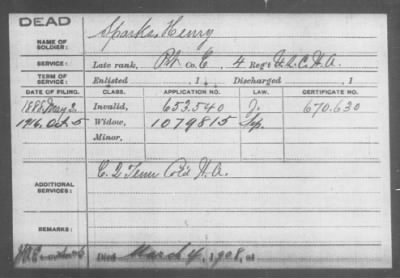 DEAD
NAME OF SOLDIER: Sparks, Henry
SERVICE: Late rank, Pvt Co. E, 4 Reg't U.S.C.H.A.
TERM OF SERVICE: Enlisted , 1 Discharged , 1
DATE OF FILING. CLASS. APPLICATION NO. LAW. CERTIFICATE NO.
1888 May 2 Invalid, 653.540 J. 670.630
1916. Oct 5 Widow, 1079815 Sep.
Minor,
ADDITIONAL SERVICES: C. 2 Tenn Col'd H.A.
REMARKS:
Died March 4, 1908, at